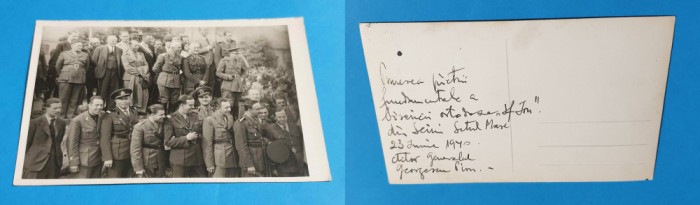 Punerea pietrii
fundamentale a
bisericii ortodoxe „Sf. Ion"
din Seini Satul Mare
23 Iunie 1940
ctitor generalul
Georgescu Pion. -